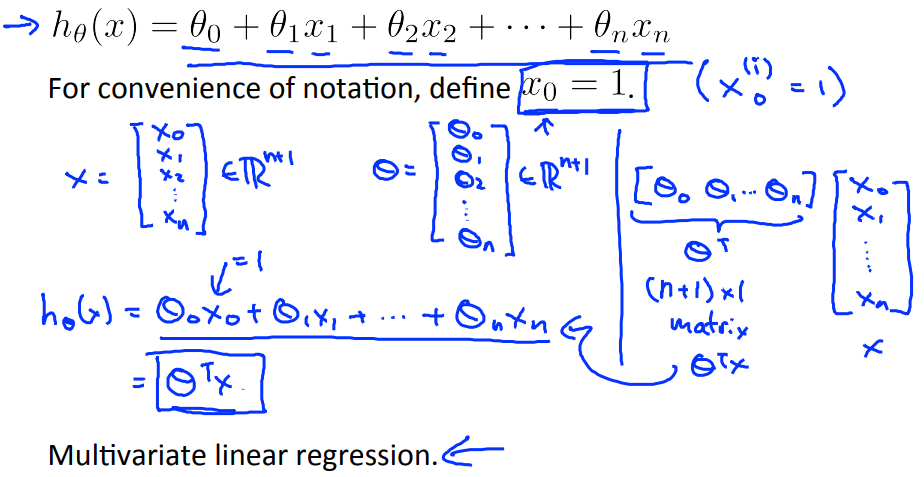 → hθ(x) = θ0 + θ1x1 + θ2x2 + ··· + θnxn
For convenience of notation, define x0 = 1. (x0^(i) = 1)
x = [x0 x1 x2 ⋮ xn] ∈ ℝ^(n+1) θ = [θ0 θ1 θ2 ⋮ θn] ∈ ℝ^(n+1)
[θ0 θ1 ··· θn] [x0 x1 ⋮ xn]
θ^T
(n+1) x 1
matrix
θ^T x
x
= 1
hθ(x) = θ0x0 + θ1x1 + ··· + θnxn
= θ^T x.
Multivariate linear regression. ←